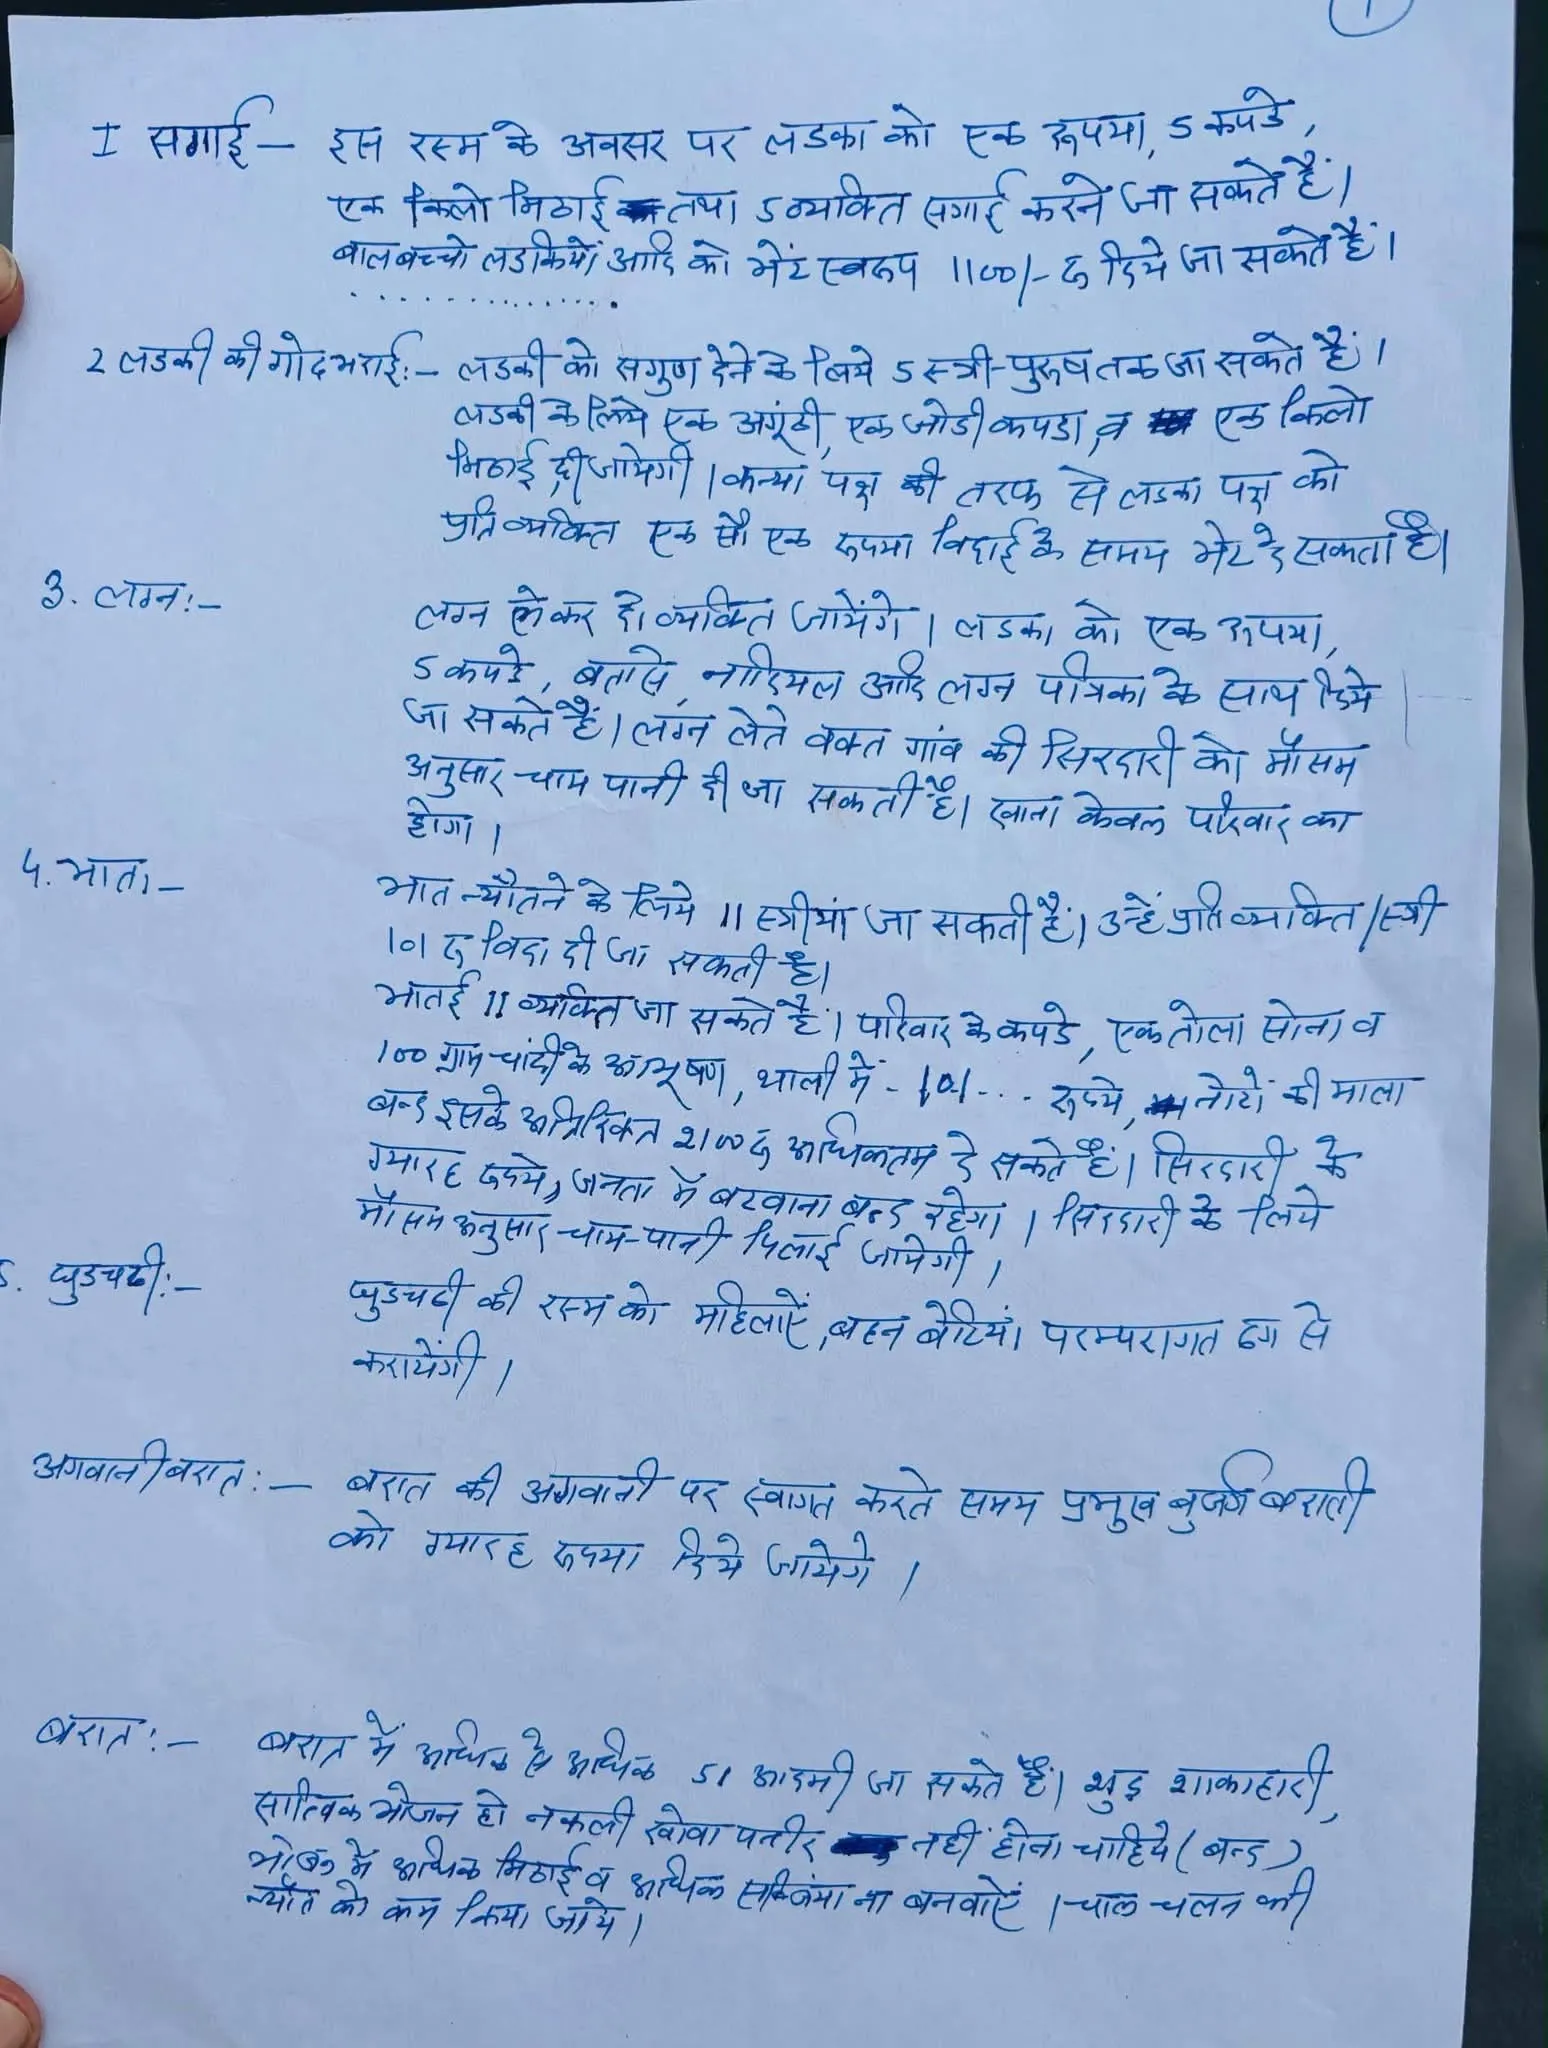 1
I सगाई – इस रस्म के अवसर पर लडका को एक रूपया, 5 कपडे,
एक किलो मिठाई तथा 5 व्यक्ति सगाई करने जा सकते हैं।
बालबच्चो लडकियों आदि को भेंट स्वरूप 1100/- रु दिये जा सकते हैं।
2 लडकी की गोदभराई:- लडकी को सगुण देने के लिये 5 स्त्री-पुरूष तक जा सकते हैं।
लडकी के लिये एक अगूंठी, एक जोडी कपडा, व एक किलो
मिठाई, दी जायेगी। कन्या पक्ष की तरफ से लडका पक्ष को
प्रति व्यक्ति एक सौ एक रूपया विदाई के समय भेट दे सकता है।
3. लग्न:- लग्न लेकर दो व्यक्ति जायेंगे। लडका को एक रूपया,
5 कपडे, बतासे, नारियल आदि लग्न पत्रिका के साथ दिये
जा सकते हैं। लग्न लेते वक्त गांव की सिरदारी को मौसम
अनुसार चाय पानी दी जा सकती है। खाना केवल परिवार का
होगा।
4. भात:- भात न्यौतने के लिये 11 स्त्रीयां जा सकती हैं। उन्हें प्रति व्यक्ति/स्त्री
101 रु विदा दी जा सकती है।
भातई 11 व्यक्ति जा सकते हैं। परिवार के कपडे, एक तोला सोना व
100 ग्राम चांदी के आभूषण, थाली में - 101... रूपये, नोटो की माला
बन्द इसके अतिरिक्त 2100 रु अधिकतम दे सकते हैं। सिरदारी के
ग्यारह रूपये, जनता में बटवाना बन्द रहेगा। सिरदारी के लिये
मौसम अनुसार चाय-पानी पिलाई जायेगी।
5. घुडचढी:- घुडचढी की रस्म को महिलाऐं, बहन बेटियां परम्परागत ढग से
करायेंगी।
अगवानी बरात:- बरात की अगवानी पर स्वागत करते समय प्रमुख बुजर्ग बराती
को ग्यारह रूपया दिये जायेगे।
बरात:- बरात में अधिक से अधिक 51 आदमी जा सकते हैं। शुद्ध शाकाहारी,
सात्विक भोजन हो नकली खोवा पनीर नहीं होना चाहिये (बन्द)
में अधिक मिठाई व अधिक सब्जिंया ना बनवाऐं। चाल चलन की
न्यौत को कम किया जाये।